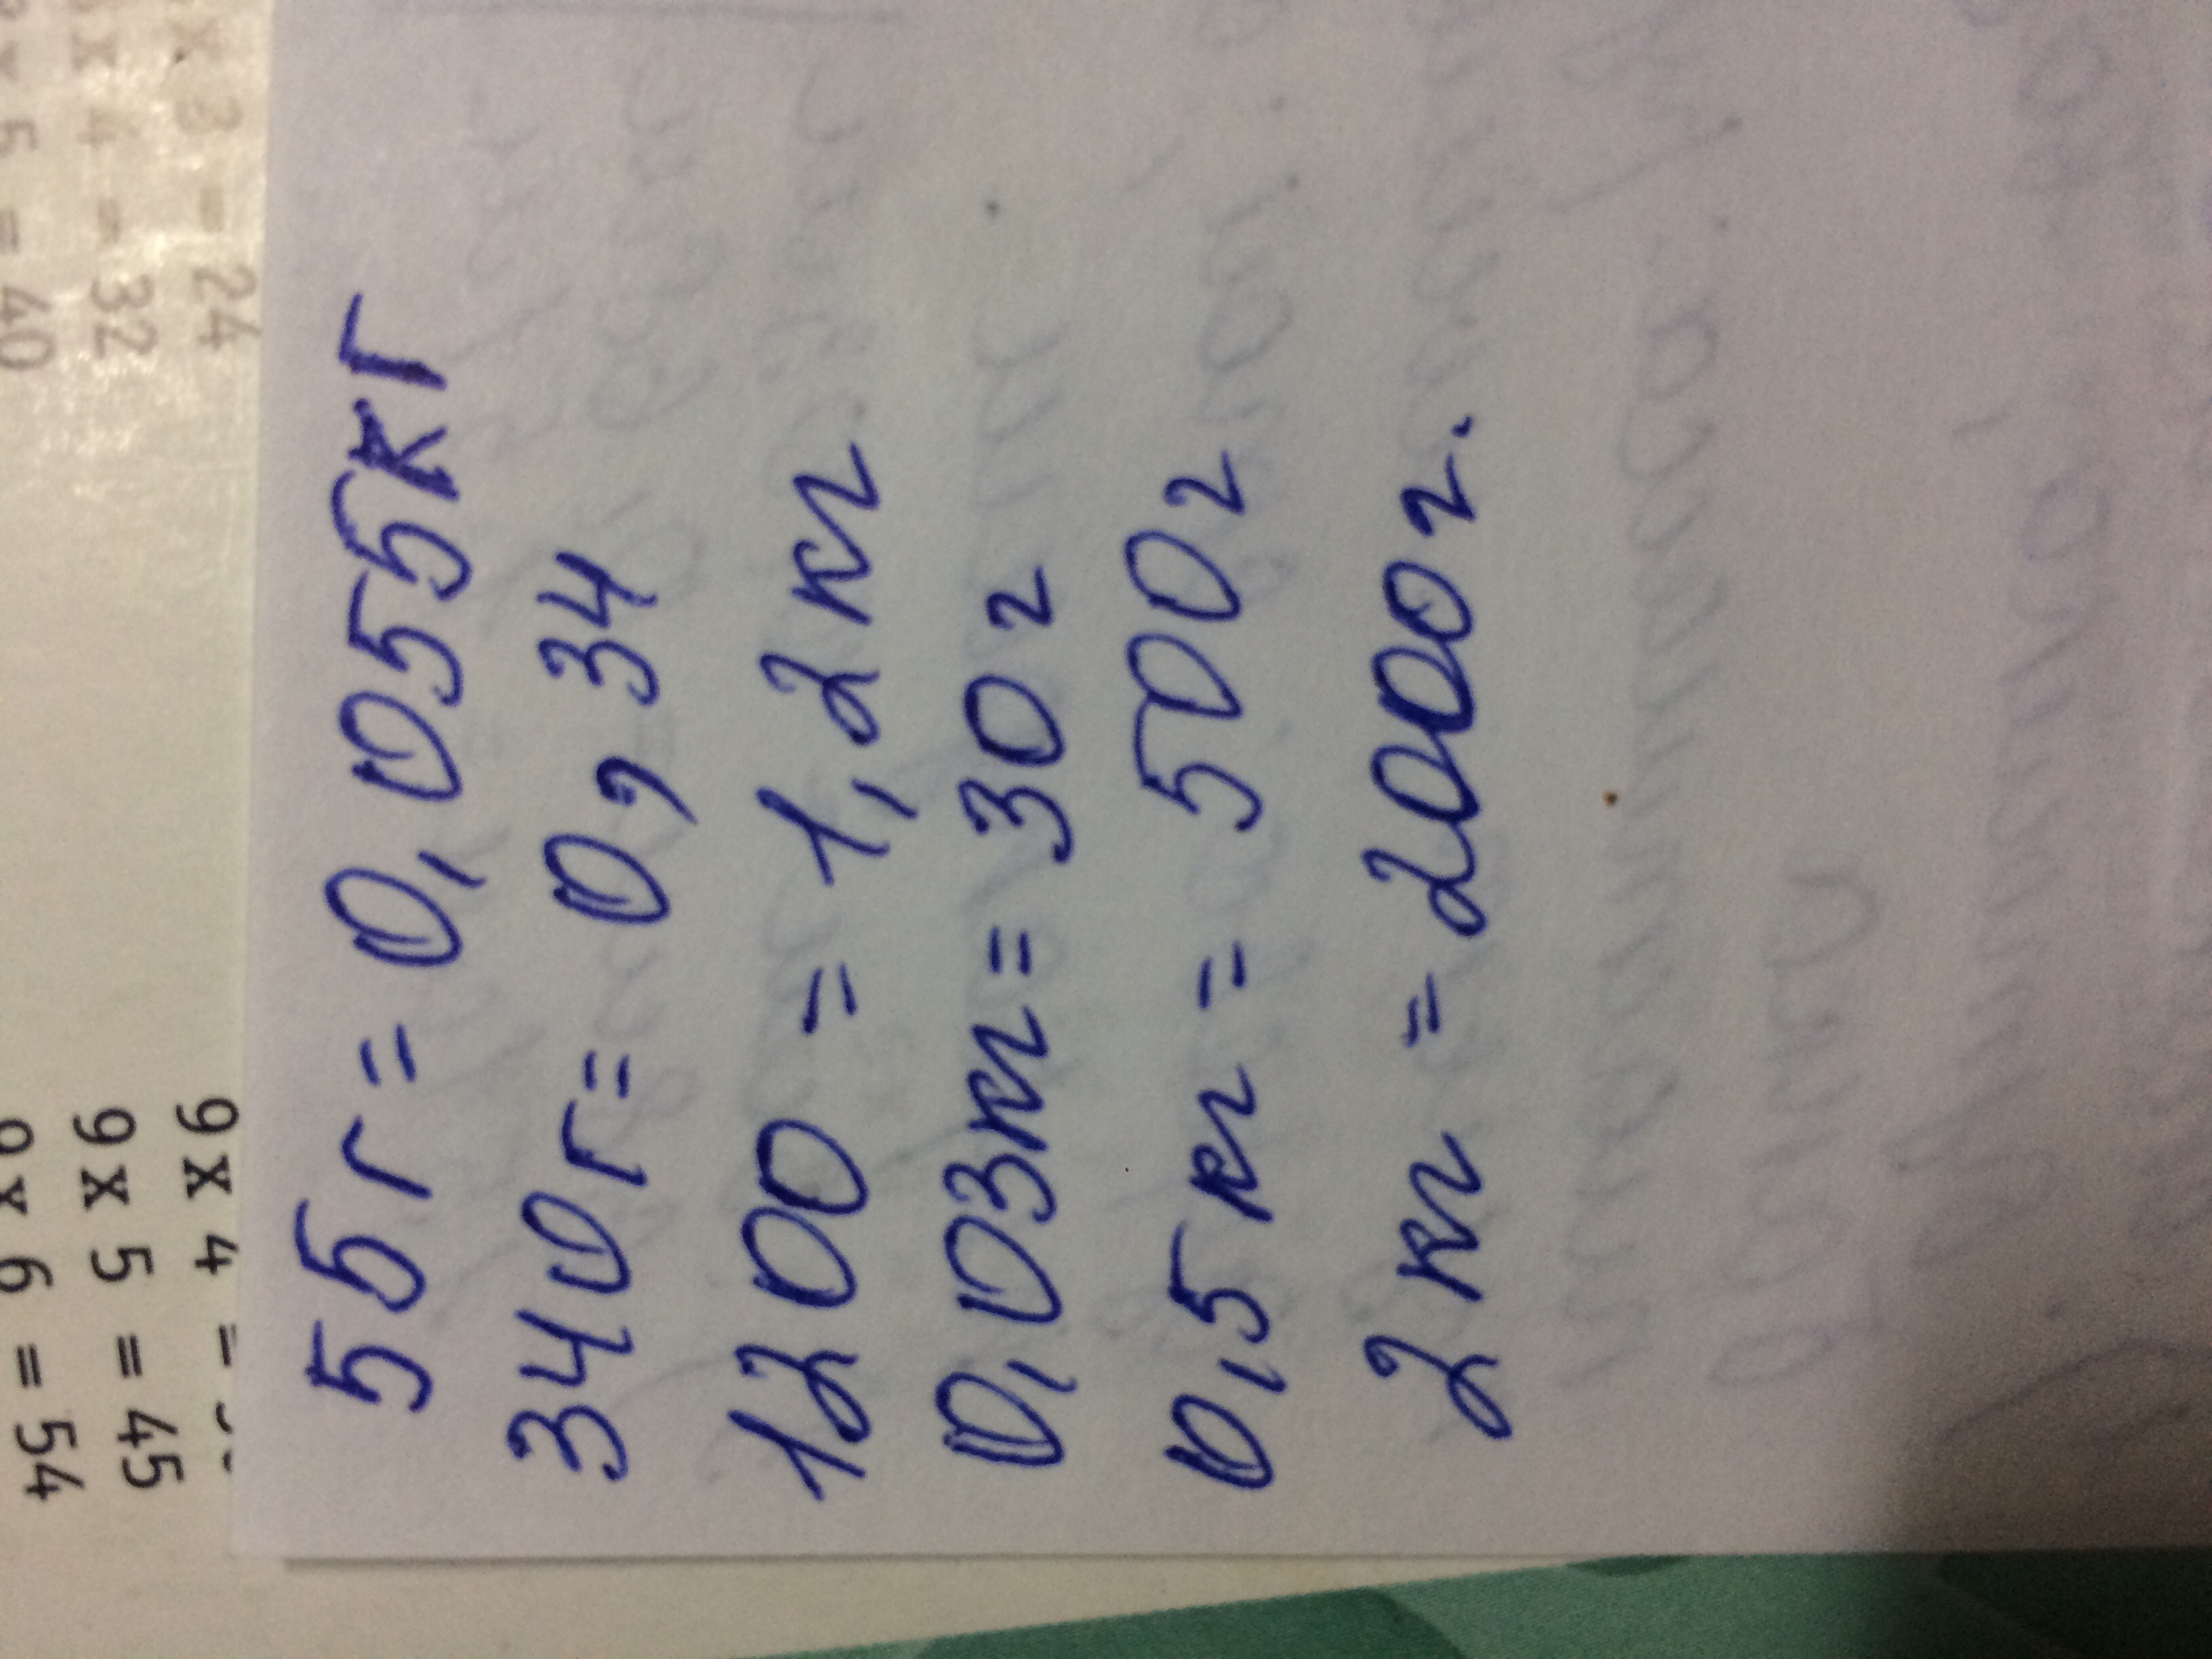 55г = 0,055кг
340г = 0,34
1200 = 1,2кг
0,03кг = 30г
0,5кг = 500г
2кг = 2000г.
x 3 = 24
x 4 = 32
x 5 = 40
9 x 4 =
9 x 5 = 45
9 x 6 = 54